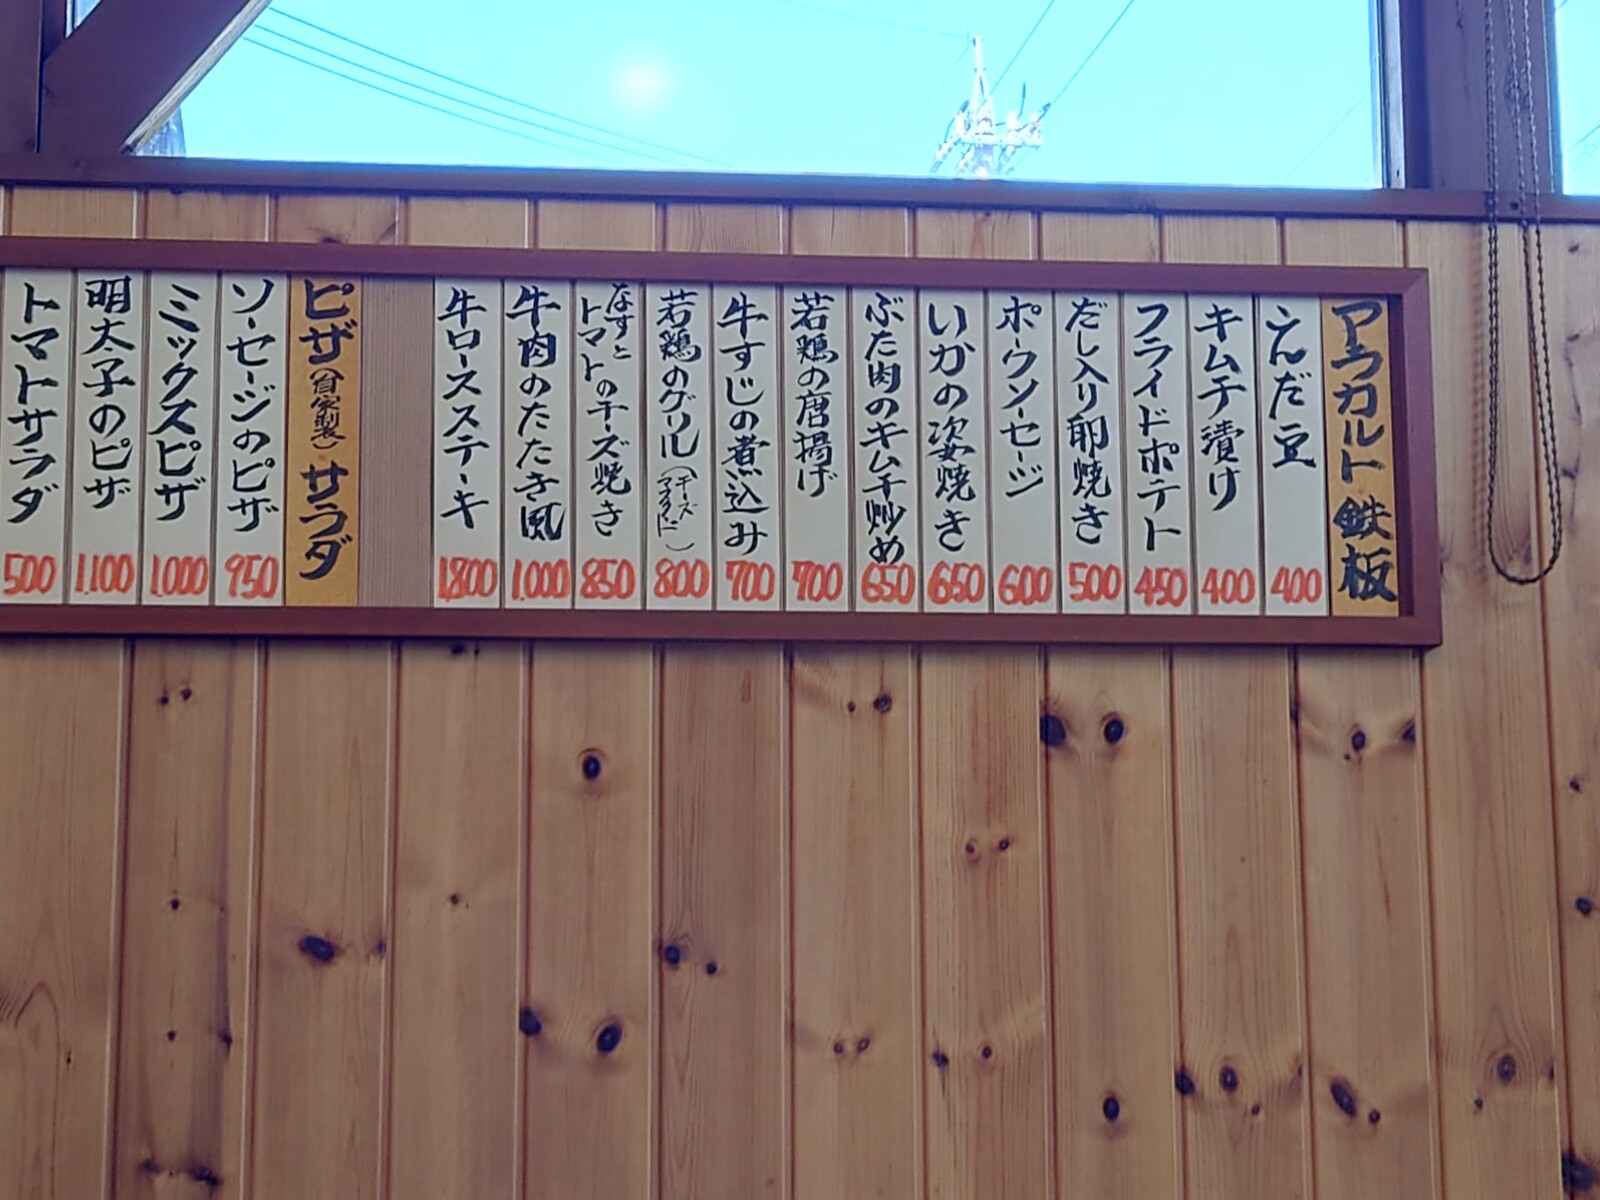 アラカルト 鉄板
えんだ豆 400
キムチ漬け 400
フライドポテト 450
だし入り卵焼き 500
ポークソーセージ 600
いかの姿焼き 650
ぶた肉のキムチ炒め 650
若鶏の唐揚げ 700
牛すじの煮込み 700
若鶏のグリル(チーズマスタード) 800
なすとトマトのチーズ焼き 850
牛肉のたたき風 1,000
牛ロースステーキ 1,800
ピザ(自家製) サラダ
ソーセージのピザ 950
ミックスピザ 1,000
明太子のピザ 1,100
トマトサラダ 500